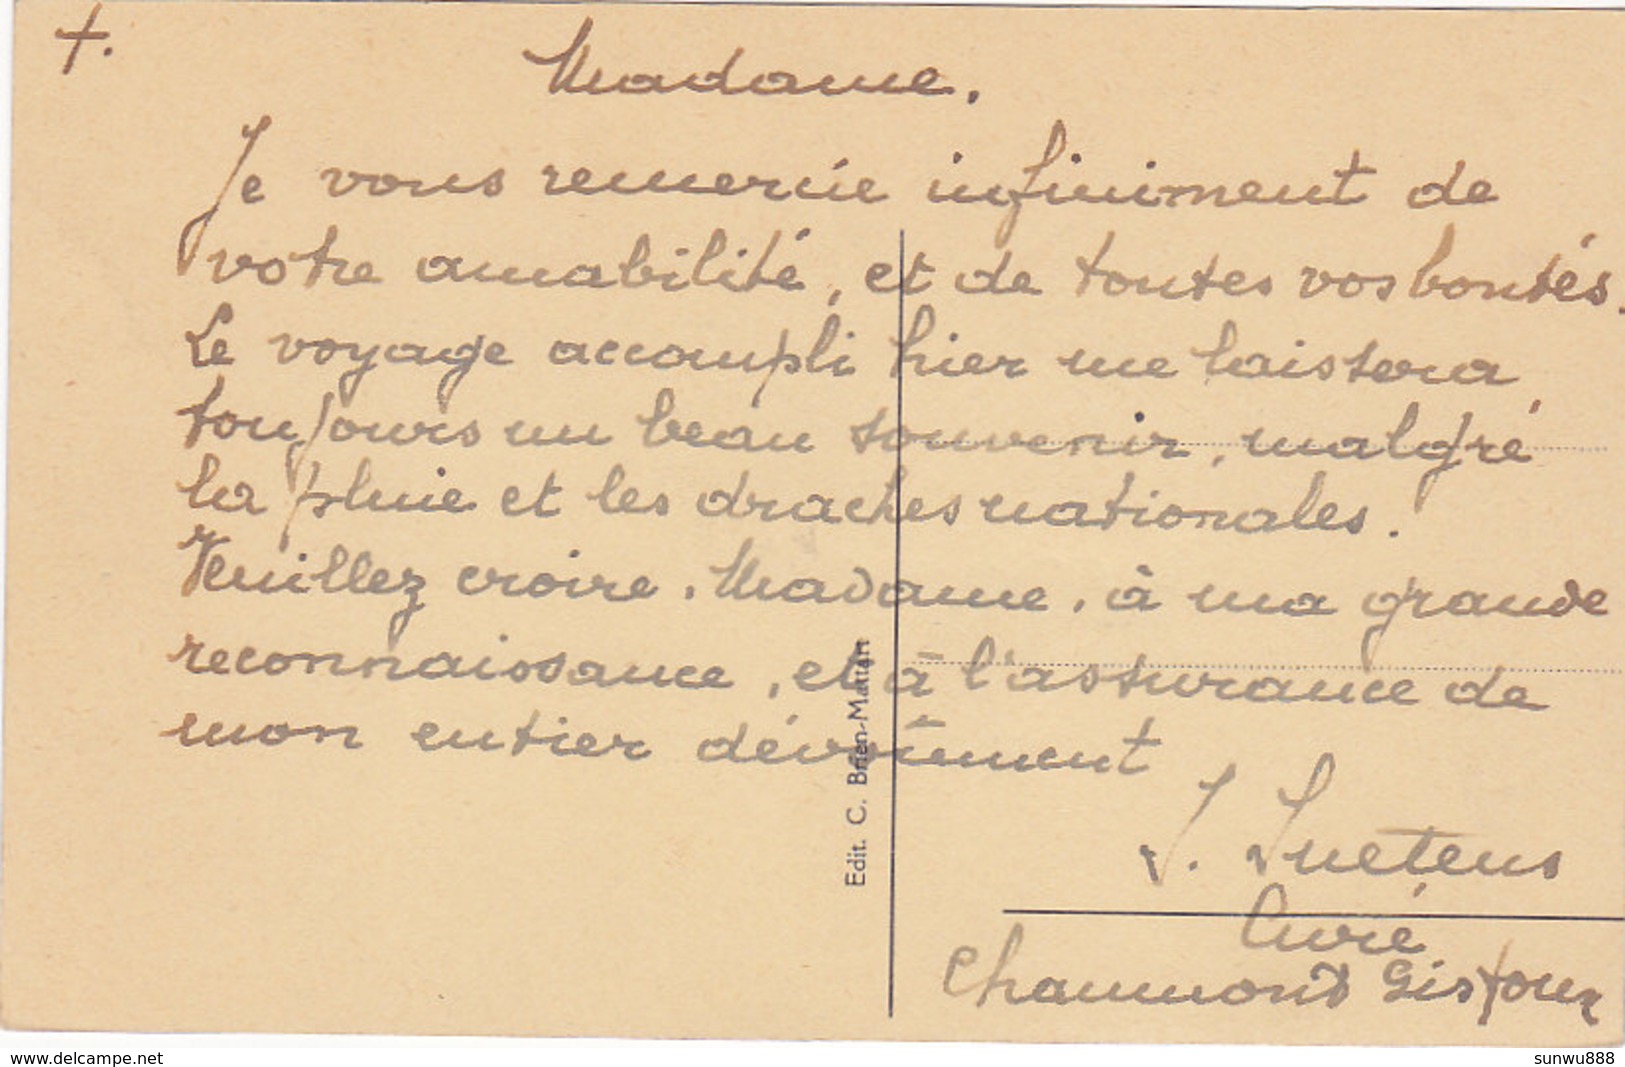 +.
Madame.
Je vous remercie infiniment de
votre amabilité, et de toutes vos bontés.
Le voyage accompli hier me laissera,
toujours un beau souvenir, malgré
la pluie et les draches nationales.
Veuillez croire, Madame, à ma grande
reconnaissance, et à l'assurance de
mon entier dévoûment
J. Suetens
Curé
Chaumont Gistoux
Edit. C. Brien-Mattart
www.delcampe.net
sunwu888